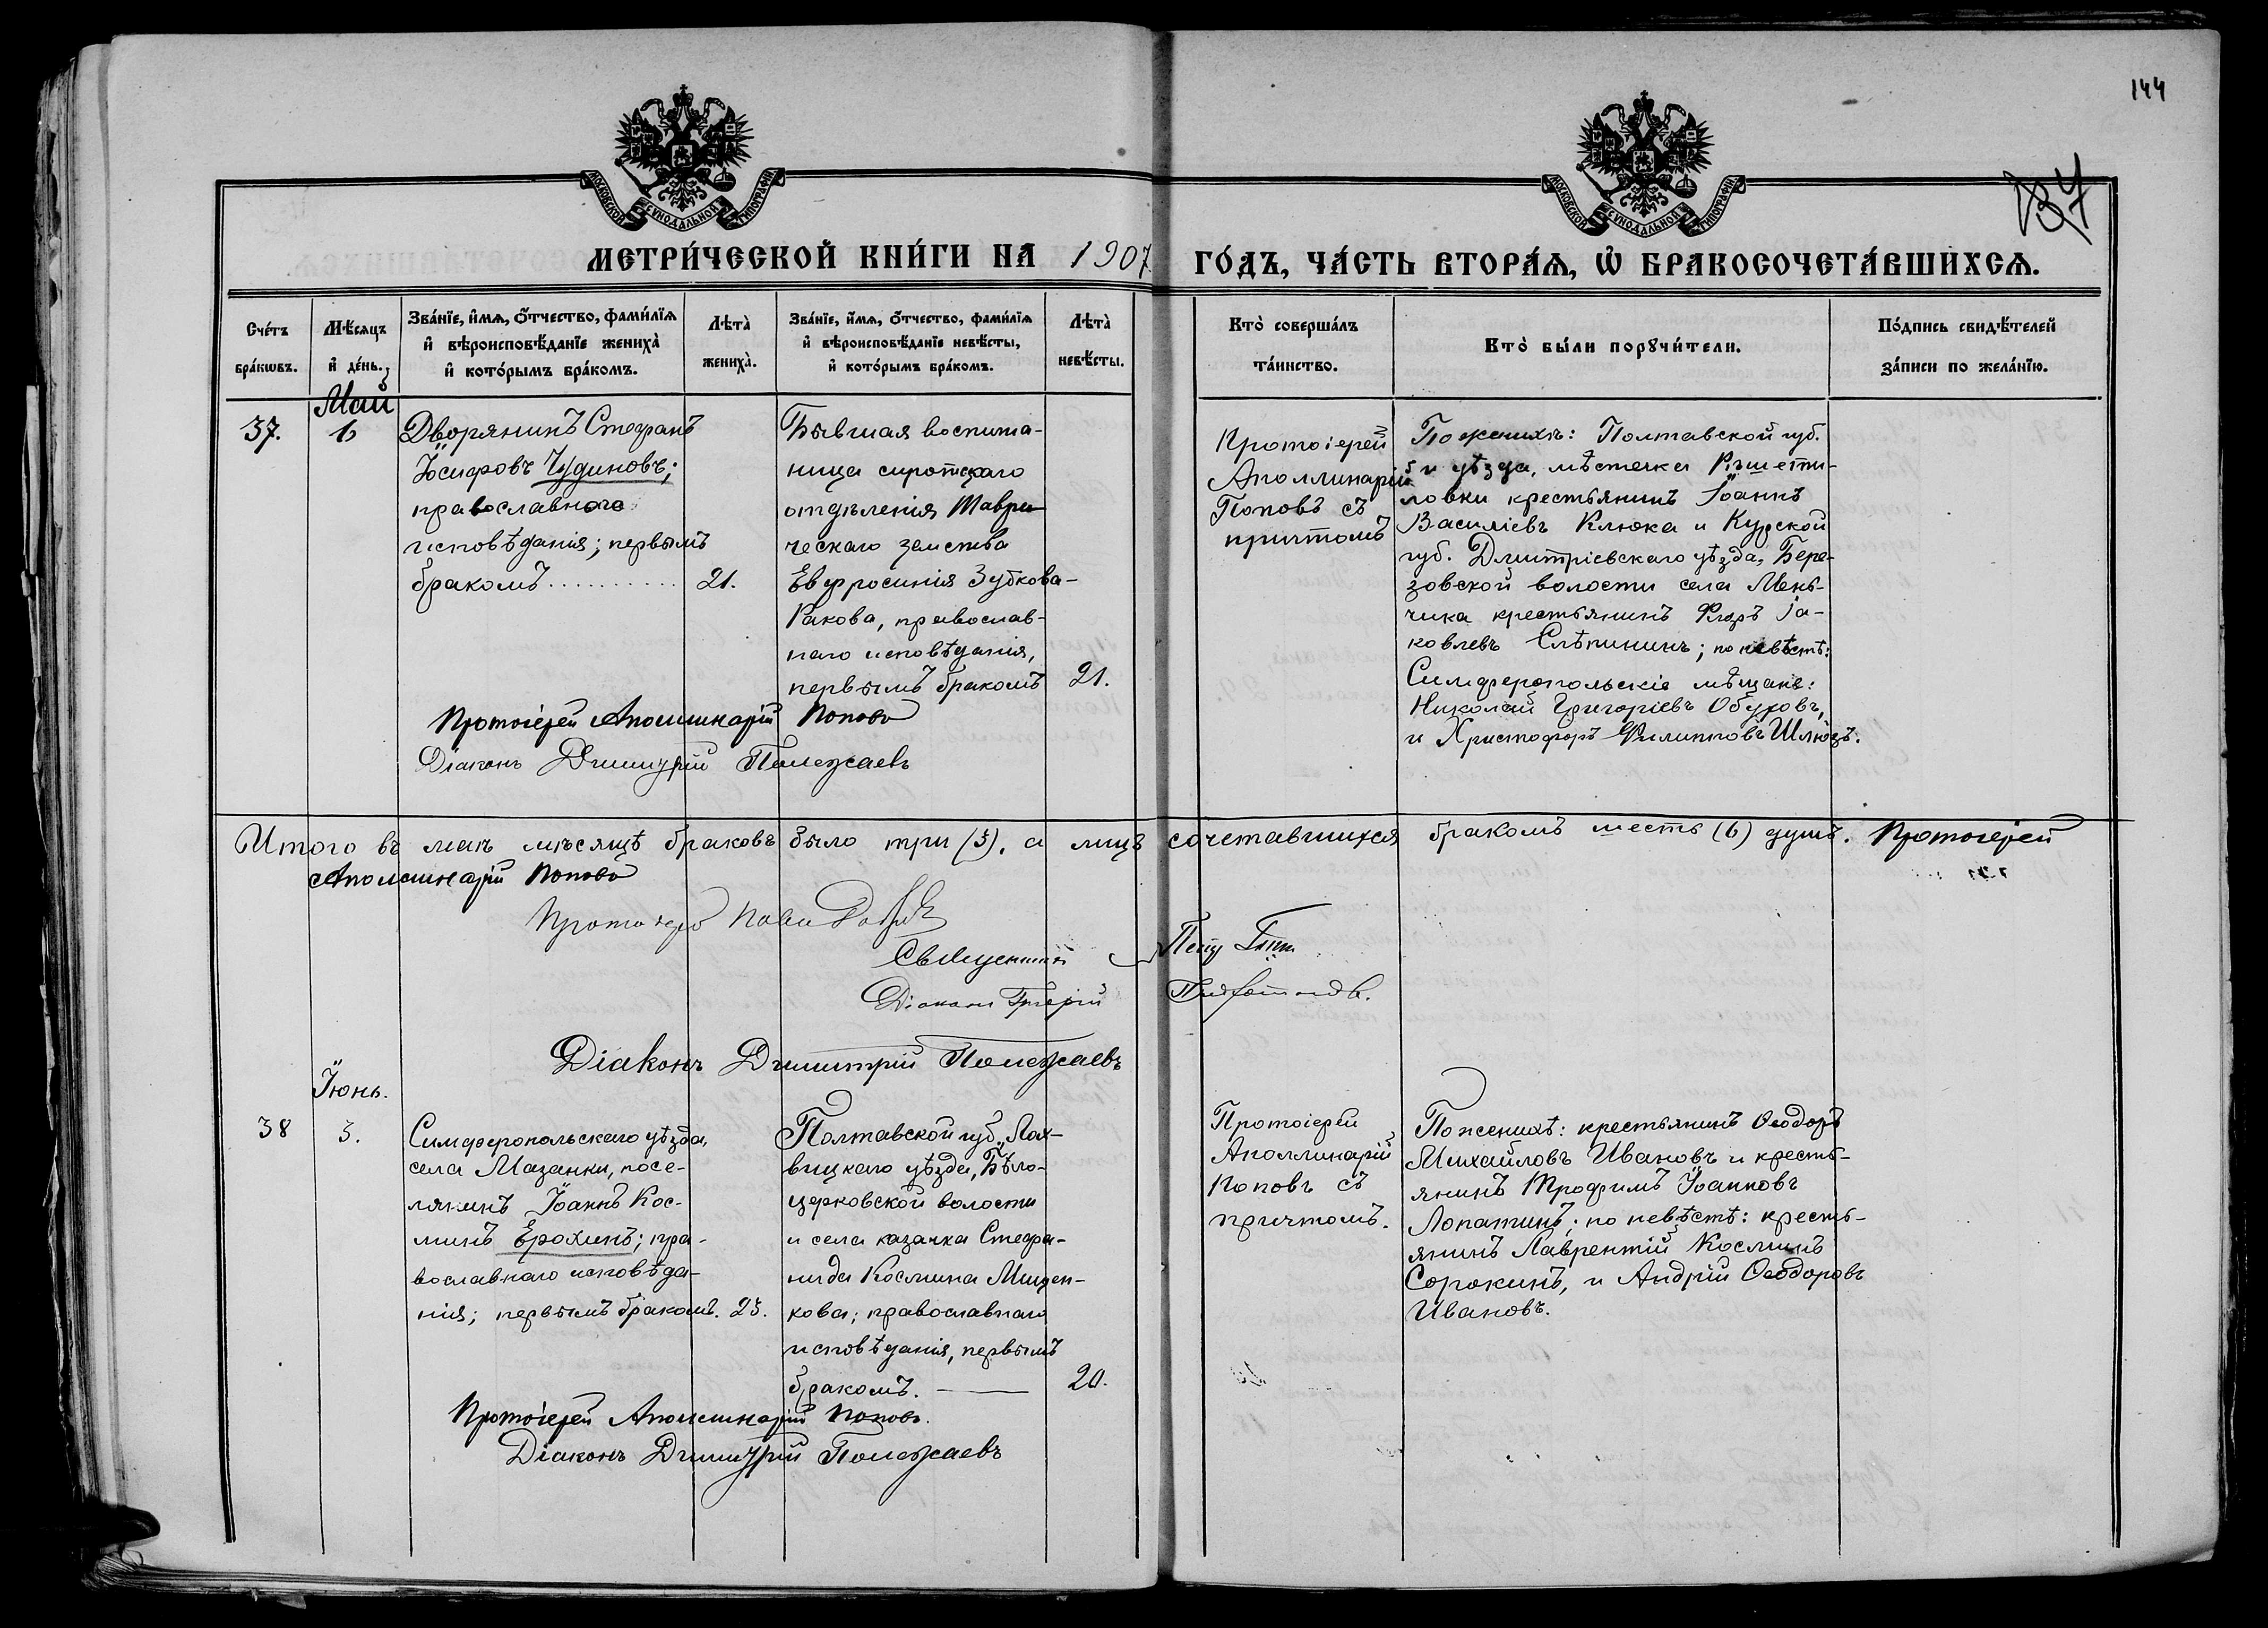 144
137
МОСКОВСКОЙ СѴНОДАЛЬНОЙ ТИПОГРАФІИ
МОСКОВСКОЙ СѴНОДАЛЬНОЙ ТИПОГРАФІИ
МЕТРИ́ЧЕСКОЙ КНИ́ГИ НА 1907 ГО́ДЪ, ЧА́СТЬ ВТОРА́Ѧ, Ѽ БРАКОСОЧЕТА́ВШИХСѦ.
Сче́тъ
бра́кѡвъ.
Мѣ́сѧцъ
и҆ де́нь.
Зва́нїе, и҆́мѧ, ѻ҆́тчество, фами́лїѧ
и҆ вѣроисповѣ́данїе жениха̀
и҆ кото́рымъ бра́комъ.
Лѣта̀
жениха̀.
Зва́нїе, и҆́мѧ, ѻ҆́тчество, фами́лїѧ
и҆ вѣроисповѣ́данїе невѣ́сты,
и҆ кото́рымъ бра́комъ.
Лѣта̀
невѣ́сты.
Кто̀ соверша́лъ
та́инство.
Кто̀ бы́ли порꙋчи́тели.
По́дпись свидѣ́телей
за́писи по жела́нїю.
Май
37.
6
Дворянинъ Стефанъ
Іосифовъ Чудиновъ;
православнаго
исповѣданія; первымъ
бракомъ . . . . . . . . . . 21.
Бывшая воспита-
ница сиротскаго
отдѣленія Таври-
ческаго земства
Евфросинія Зубкова-
Ракова, православ-
наго исповѣданія,
первымъ бракомъ 21.
Протоіерей
Аполлинарій
Поповъ съ
причтомъ
По женихѣ: Полтавской губ.
и уѣзда, мѣстечка Рѣшети-
ловки крестьянинъ Іоаннъ
Василіевъ Клюка и Курской
губ. Дмитріевскаго уѣзда, Бере-
зовской волости села Мень-
чика крестьянинъ Іа-
ковлевъ Слѣпининъ; по невѣстѣ:
Симферопольскіе мѣщане:
Николай Григоріевъ Обуховъ,
и Христофоръ Филипповъ Шлюзъ.
Протоіерей Аполлинарій Поповъ
Діаконъ Димитрій Полежаевъ
Итого въ маѣ мѣсяцѣ браковъ было три (3), а лицъ сочетавшихся бракомъ шесть (6) душъ. Протоіерей
Аполлинарій Поповъ
Протоіерей
Священникъ Петръ
Діаконъ Григорій
Діаконъ Димитрій Полежаевъ
Іюнь.
38
3.
Симферопольскаго уѣзда,
села Мазанки, посе-
лянинъ Іоаннъ Кос-
минъ Ерохинъ; пра-
вославнаго исповѣда-
нія; первымъ бракомъ. 23.
Полтавской губ., Лох-
вицкаго уѣзда, Бѣло-
церковской волости
и села казачка Стефа-
нида Космина Мищен-
кова; православнаго
исповѣданія, первымъ
бракомъ. — 20.
Протоіерей
Аполлинарій
Поповъ съ
причтомъ.
По женихѣ: крестьянинъ Ѳеодоръ
Михайловъ Ивановъ и кресть-
янинъ Трофимъ Іоанновъ
Лопатинъ; по невѣстѣ: кресть-
янинъ Лаврентій Косминъ
Сорокинъ, и Андрій Ѳеодоровъ
Ивановъ.
Протоіерей Аполлинарій Поповъ.
Діаконъ Димитрій Полежаевъ